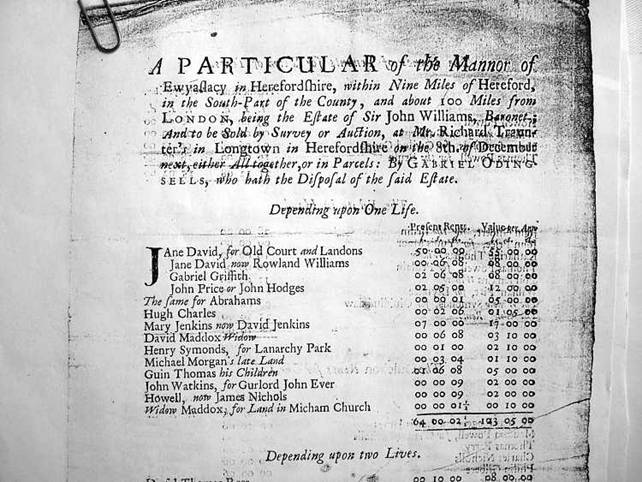 A PARTICULAR of the Mannor of
Ewyaslacy in Herefordshire, within Nine Miles of Hereford,
in the South-Part of the County, and about 100 Miles from
LONDON, being the Estate of Sir John Williams, Baronet;
And to be Sold by Survey or Auction, at Mr. Richard Traun-
ter's in Longtown in Herefordshire on the 8th. of December
next, either All together, or in Parcels: By GABRIEL ODING-
SELLS, who hath the Disposal of the said Estate.
Depending upon One Life.
Present Rents. Value per Ann
JAne David, for Old Court and Landons 50 00 00 55 00 00
Jane David now Rowland Williams 00 06 08 08 00 00
Gabriel Griffith 02 06 08 08 00 00
John Price or John Hodges 02 05 00 12 00 00
The same for Abrahams 00 00 01 05 00 00
Hugh Charles 00 02 06 01 05 00
Mary Jenkins now David Jenkins 07 00 00 17 00 00
David Maddox Widow 00 06 08 03 10 00
Henry Symonds, for Lanarchy Park 00 01 00 02 00 00
Michael Morgan's late Land 03 04 01 10 00
Guin Thomas his Children 01 06 08 05 00 00
John Watkins, for Gurlord John Ever 00 00 09 02 00 00
Howell, now James Nichols 00 00 09 02 00 00
Widow Maddox, for Land in Micham Church 00 00 01½ 00 10 00
64 00 02½ 123 05 00
Depending upon two Lives.
00 10 00 08 00 00